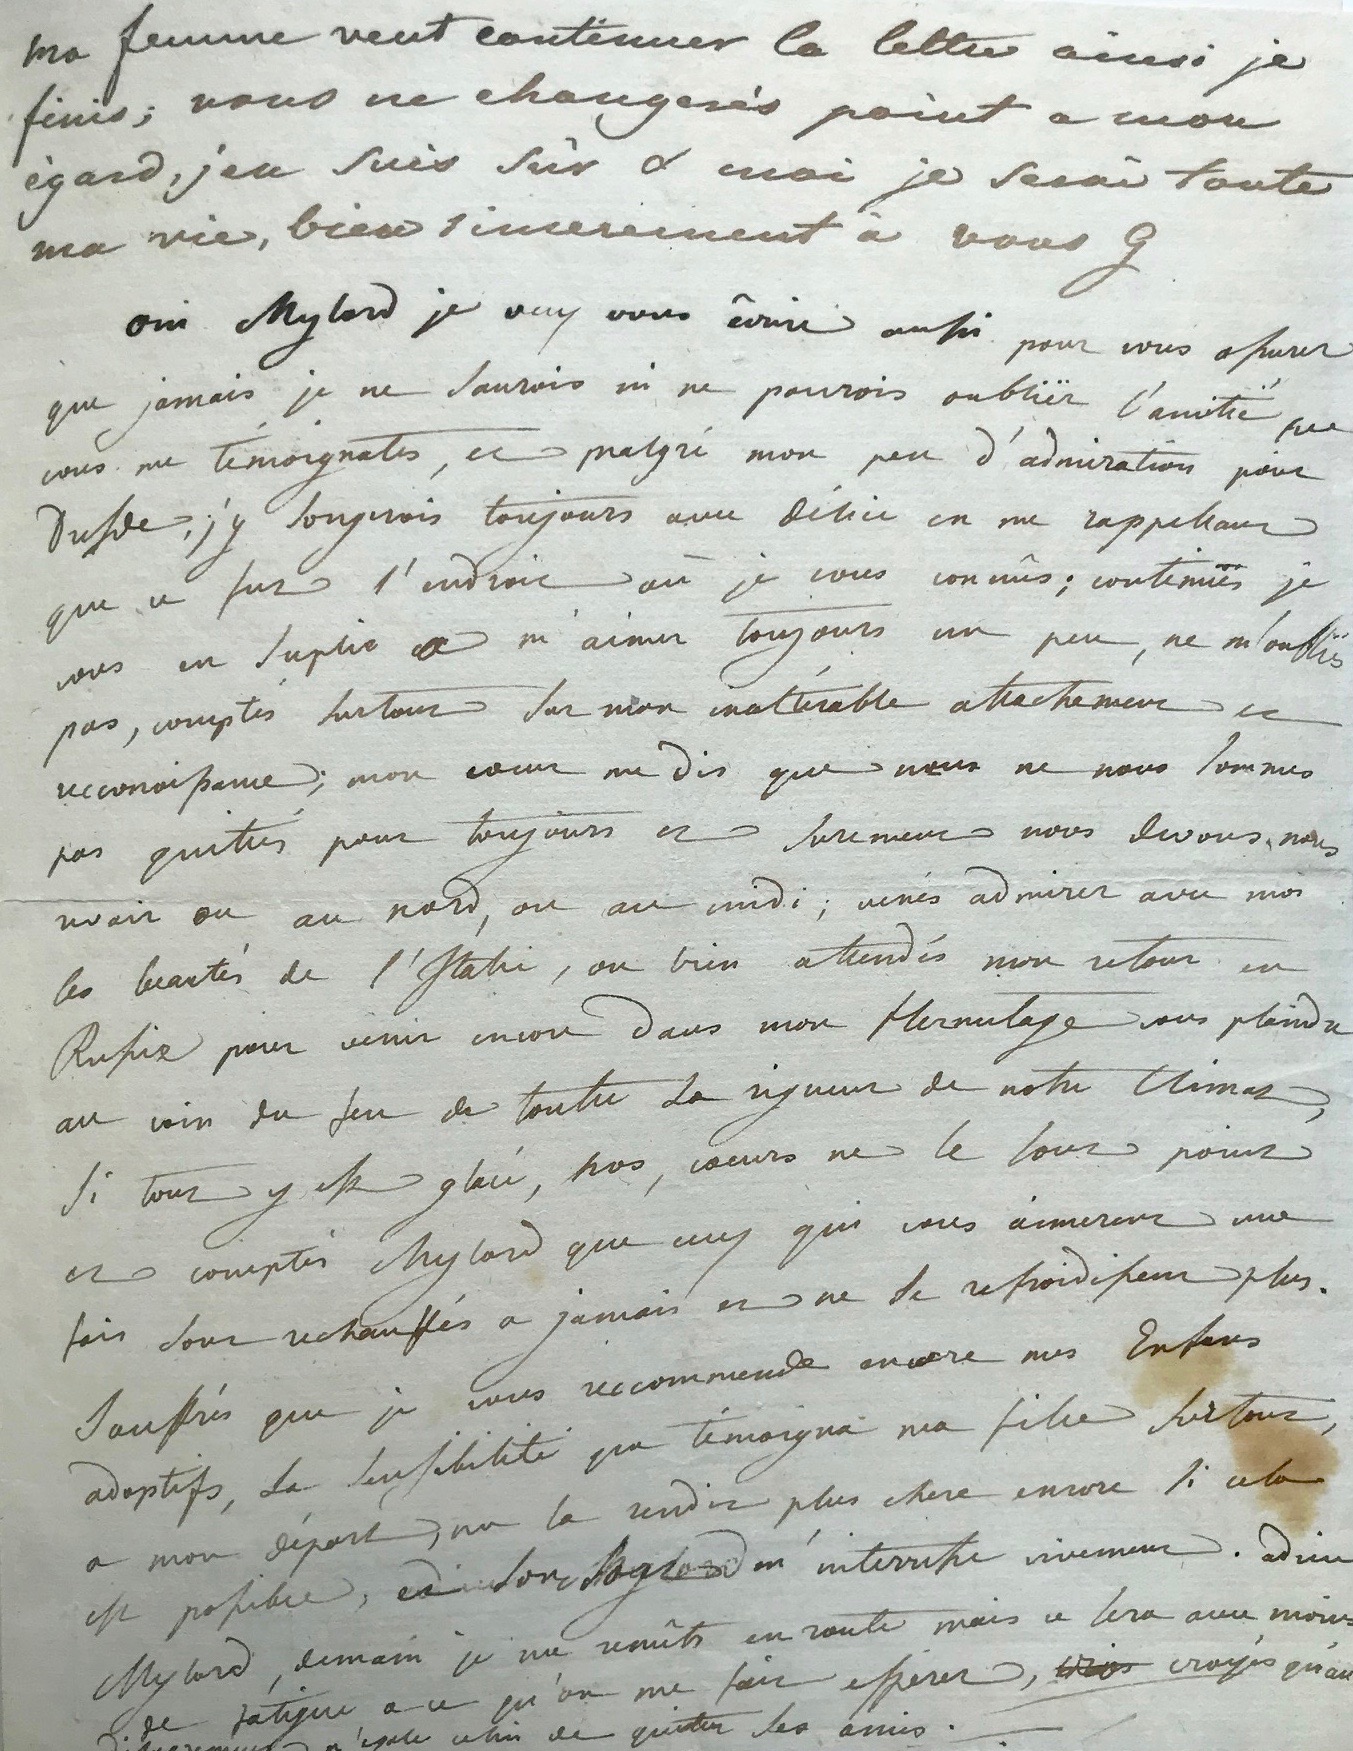 ma femme veut continuer la lettre ainsi je
finis; vous ne changerés point a mon
égard, j'en suis sûr & moi je serai toute
ma vie, bien sincerement à vous G
oui Mylord je veux vous écrire aussi pour vous assurer
que jamais je ne saurois ni ne pourois oubliër l'amitié que
vous me témoignates, et malgré mon peu d'admiration pour
Dresde, j'y songerois toujours avec délice en me rappellant
que ce fut l'endroit où je vous connûs; continuës je
vous en suplie a m'aimer toujours un peu, ne m'oubliës
pas, comptés surtout sur mon inaltérable attachement et
reconoissance; mon coeur me dis que nous ne nous sommes
pas quittés pour toujours et surement nous devons nous
revoir ou au nord, ou au midi; venés admirer avec moi
les beautés de l'Italie, ou bien attendés mon retour en
Russie pour venir encore dans mon Hermitage vous plaindre
au coin du feu de toute la rigueur de notre Climat,
si tout y est glacé, nos coeurs ne le sont point
et comptés Mylord que ceux qui vous aimerent une
fois sont rechauffés a jamais et ne se refroidissent plus.
Souffrés que je vous reccommende encore mes Enfans
adoptifs, la sensibilité que témoigna ma fille surtout,
a mon départ, me la rendit plus chere encore si cela
est possible, son m'interresse vivement. adieu
Mylord, demain je me remêts en route mais ce sera avec moins
de fatigue a ce qu'on me fait esperer, croyés qu'au
n'egale celui de quitter ses amis.